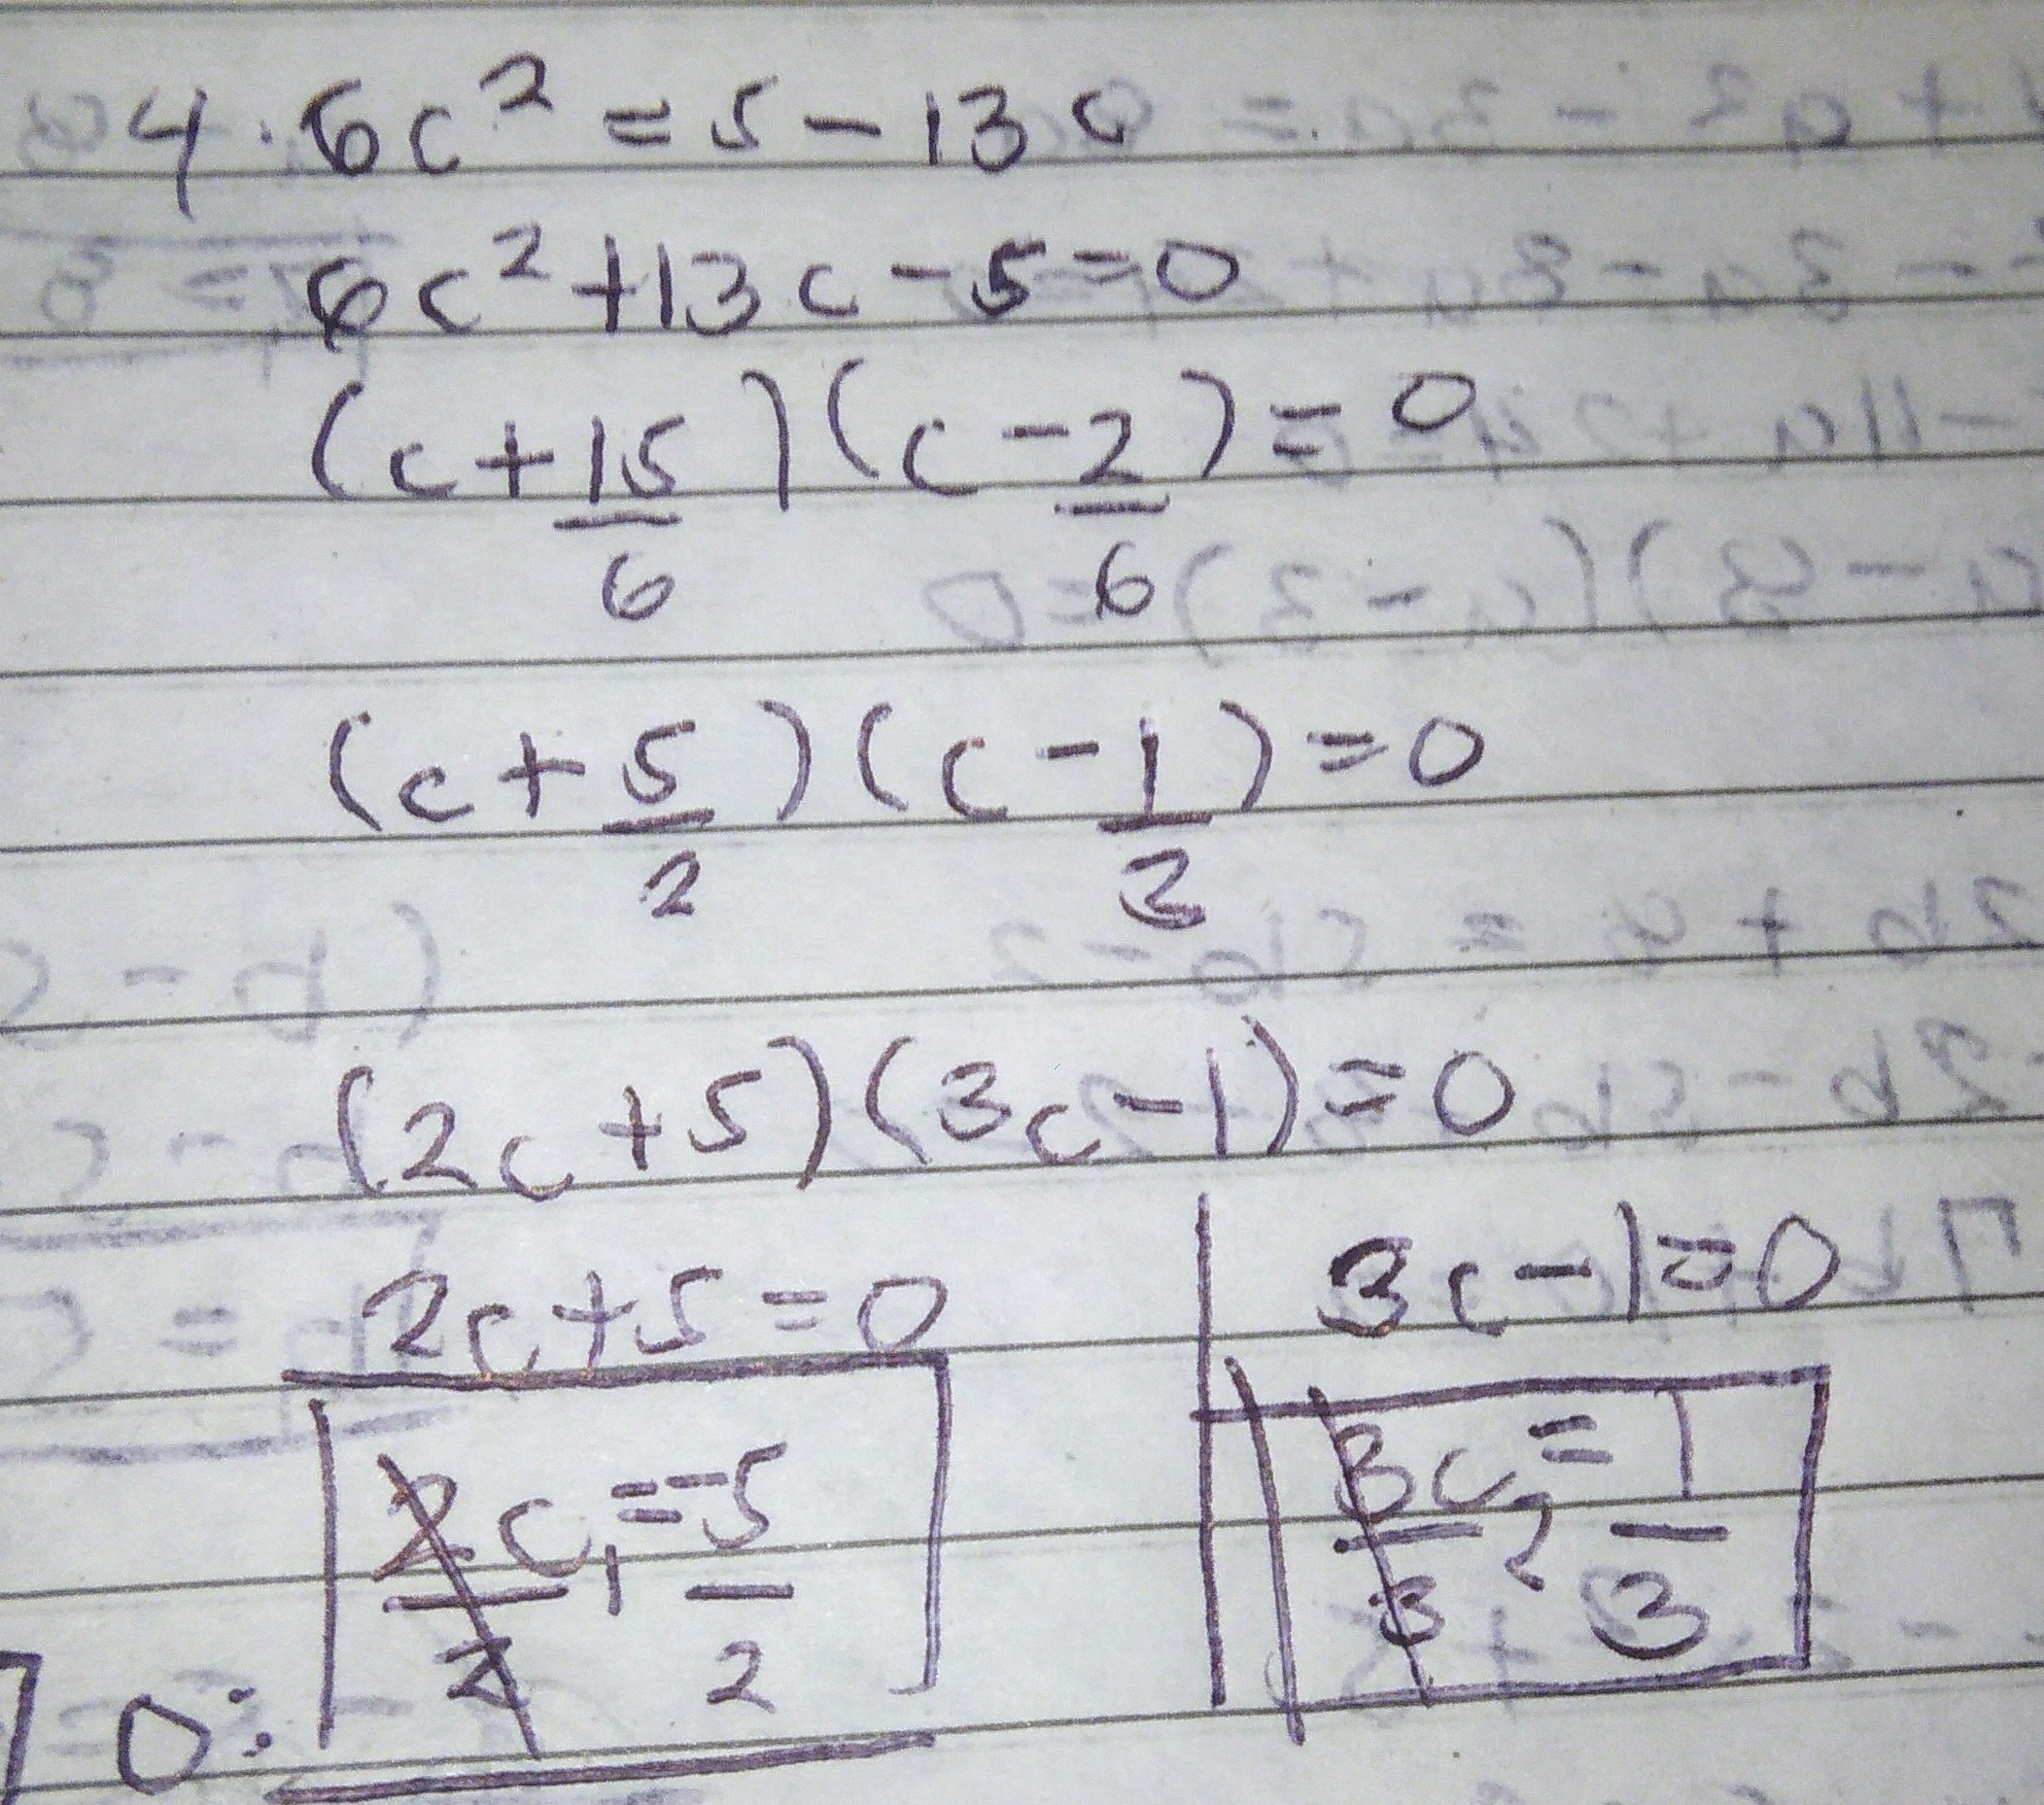 4. 6c² = 5 - 13c
6c² + 13c - 5 = 0
(c + 15/6)(c - 2/6) = 0
(c + 5/2)(c - 1/3) = 0
(2c + 5)(3c - 1) = 0
2c + 5 = 0 | 3c - 1 = 0
2c₁/2 = -5/2 | 3c₂/3 = 1/3
0: